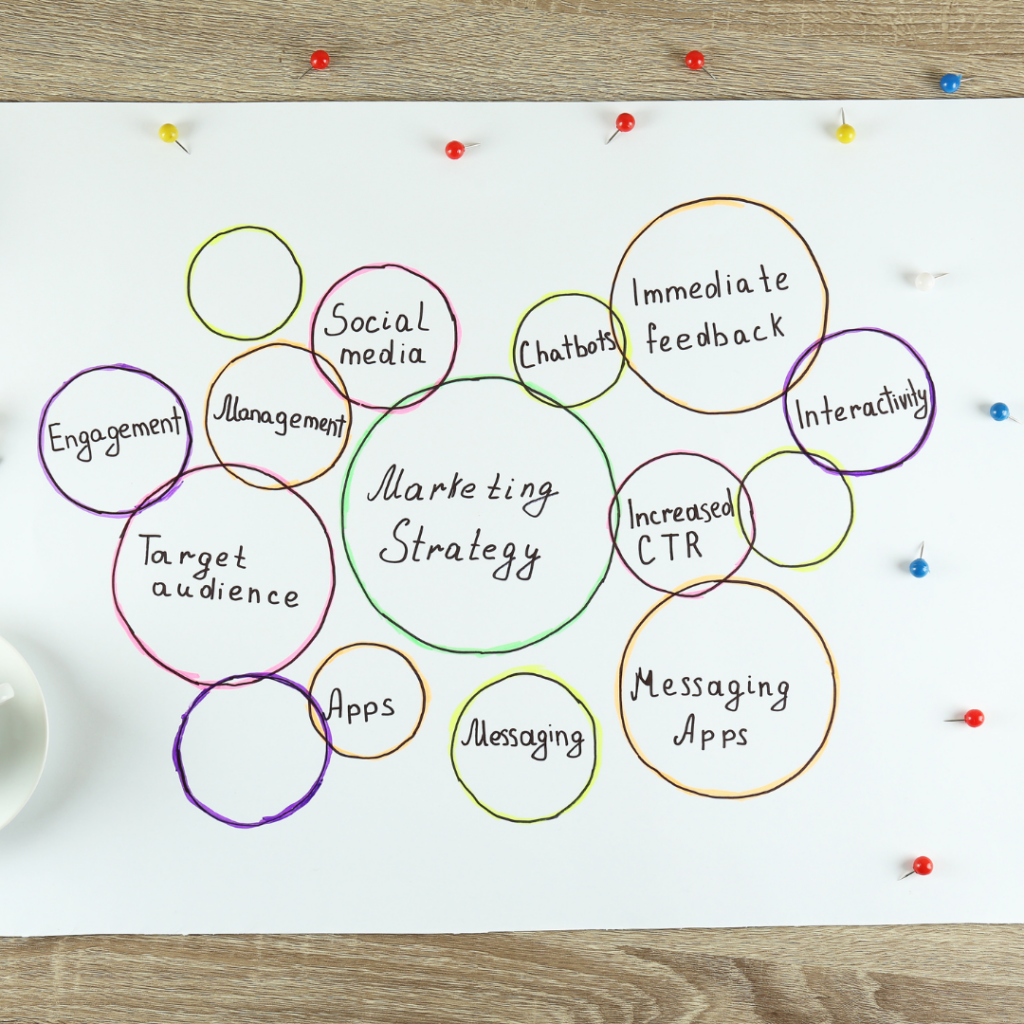 Social
media
Immediate
feedback
Chatbots
Engagement
Management
Interactivity
Marketing
Strategy
Increased
CTR
Target
audience
Apps
Messaging
Messaging
Apps